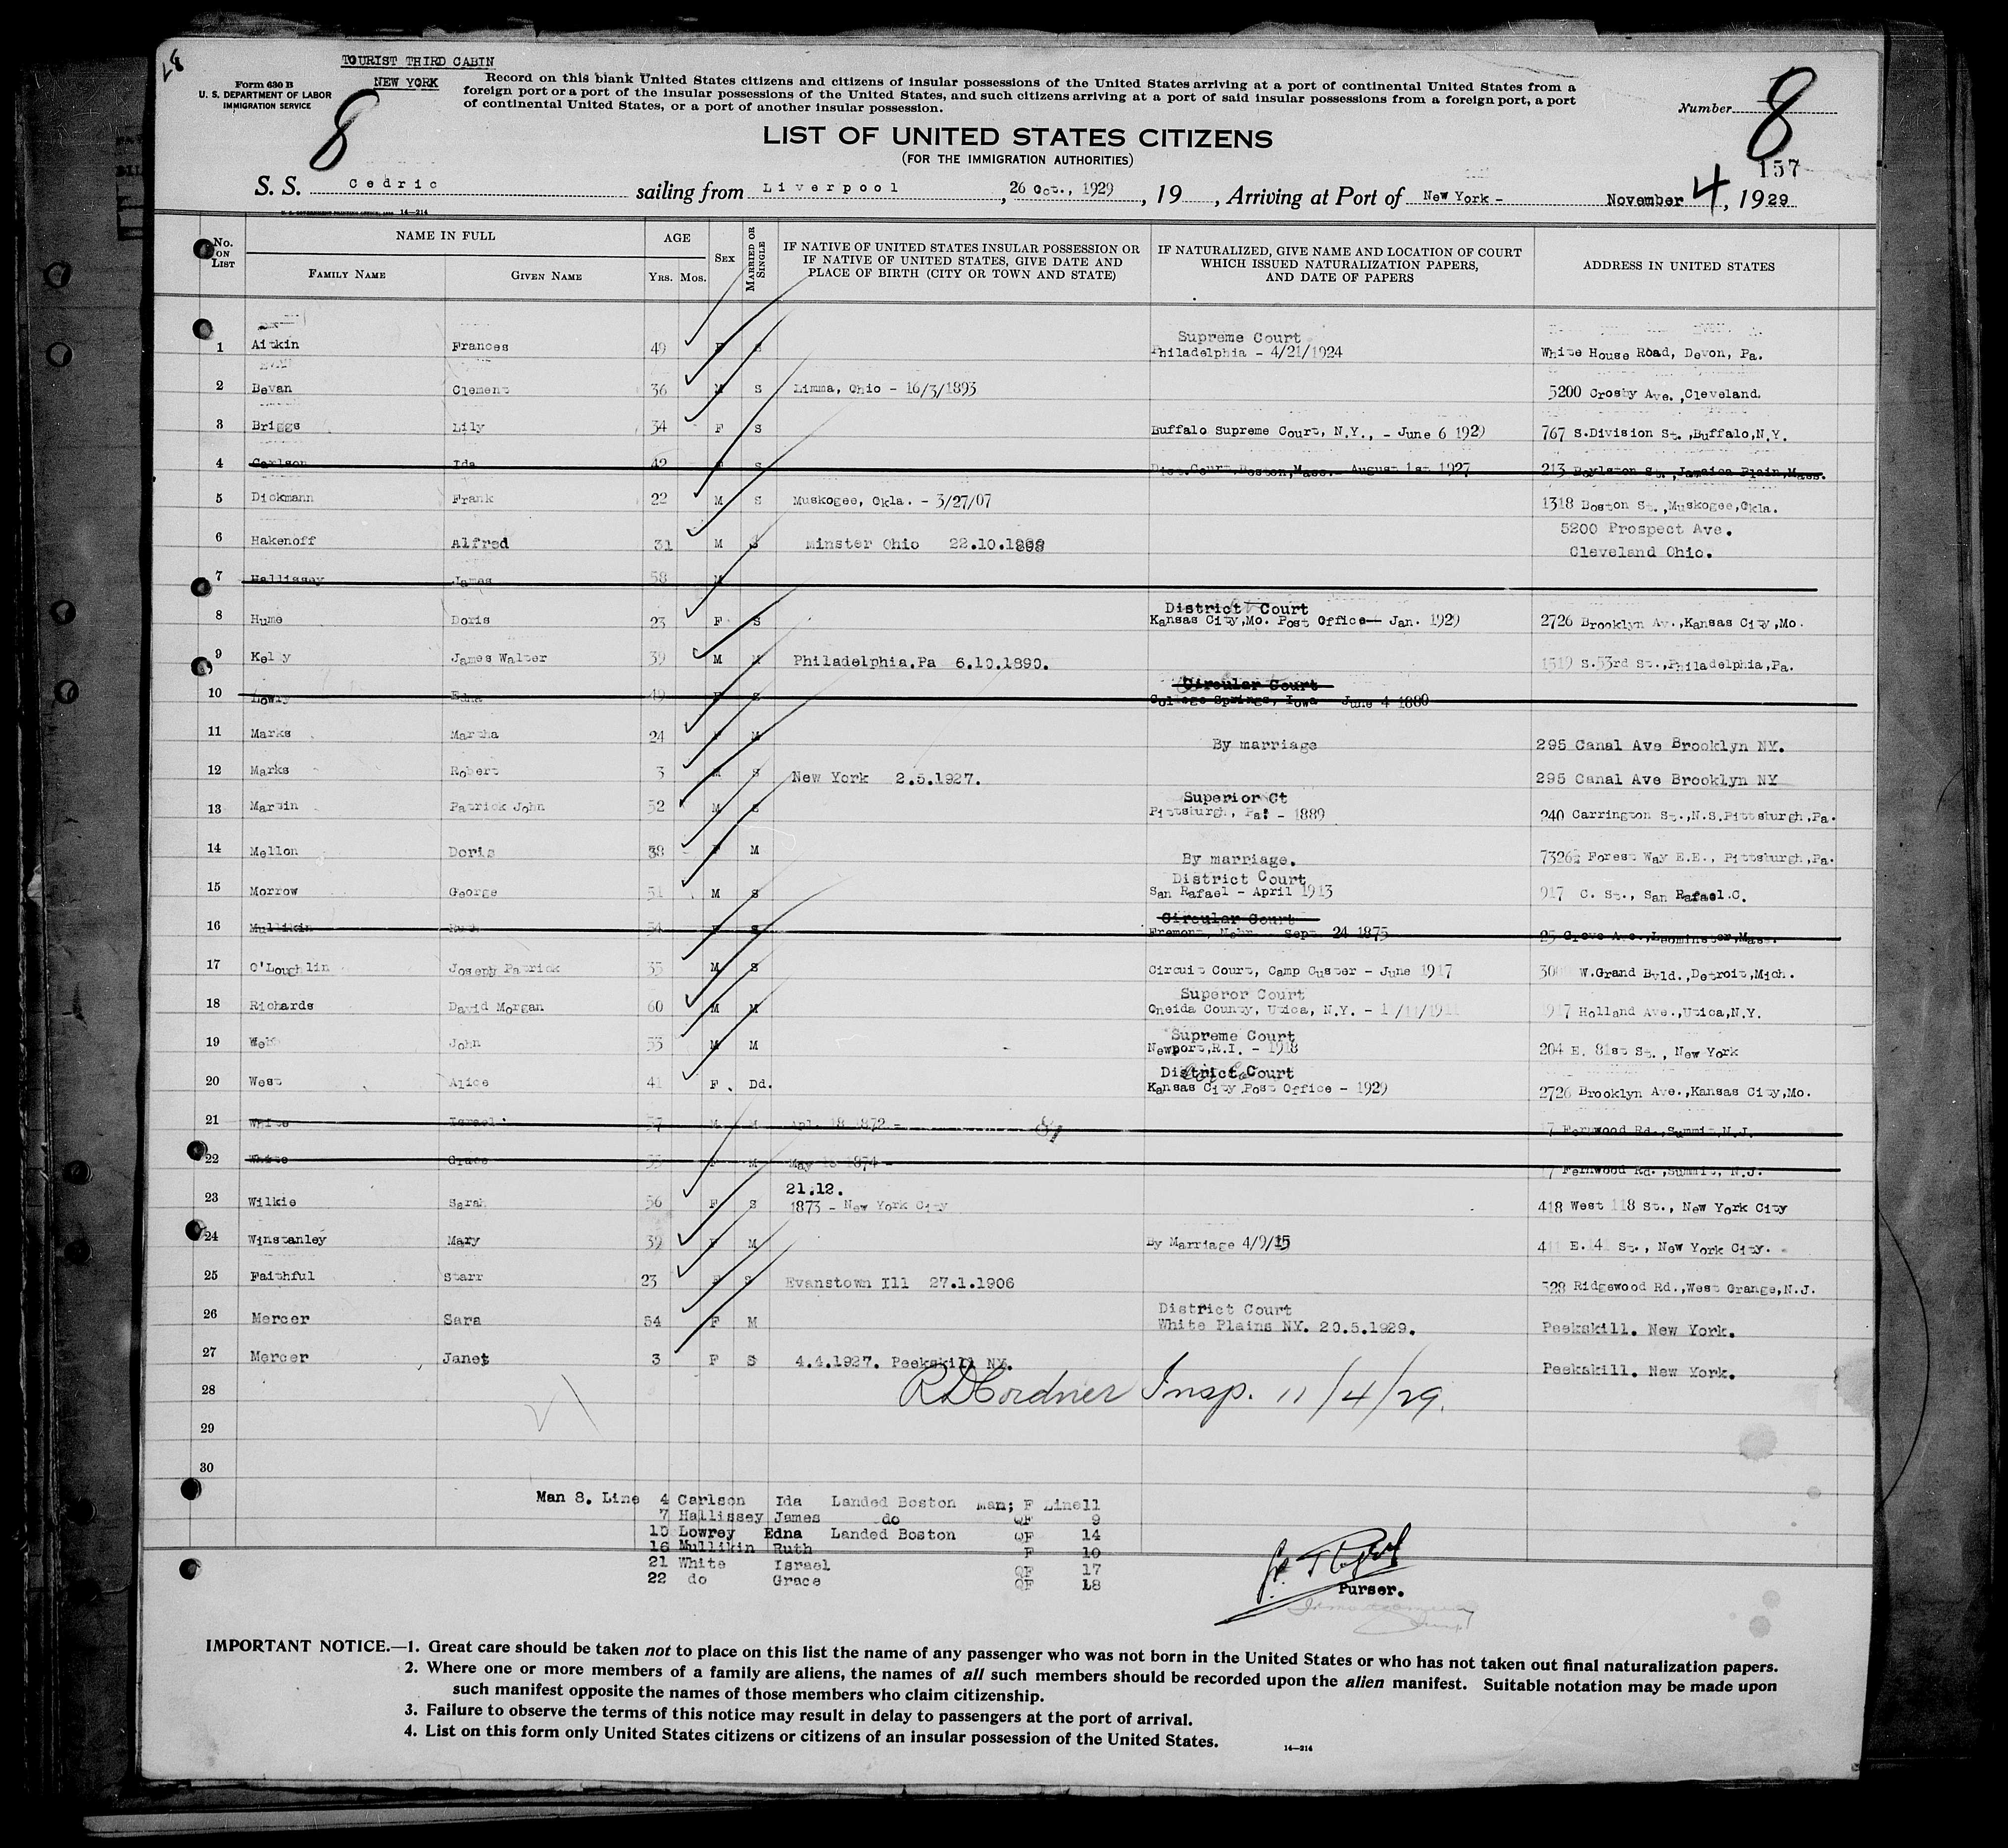 TOURIST THIRD CABIN
NEW YORK
Form 630 B
U. S. DEPARTMENT OF LABOR
IMMIGRATION SERVICE
8
Record on this blank United States citizens and citizens of insular possessions of the United States arriving at a port of continental United States from a
foreign port or a port of the insular possessions of the United States, and such citizens arriving at a port of said insular possessions from a foreign port, a port
of continental United States, or a port of another insular possession.
Number 8
157
LIST OF UNITED STATES CITIZENS
(FOR THE IMMIGRATION AUTHORITIES)
S. S. Cedric sailing from Liverpool , 26 Oct., 1929 , 19 , Arriving at Port of New York - November 4, 1929
14—214
No. ON LIST
NAME IN FULL
FAMILY NAME GIVEN NAME
AGE
YRS. MOS.
SEX
MARRIED OR SINGLE
IF NATIVE OF UNITED STATES INSULAR POSSESSION OR
IF NATIVE OF UNITED STATES, GIVE DATE AND
PLACE OF BIRTH (CITY OR TOWN AND STATE)
IF NATURALIZED, GIVE NAME AND LOCATION OF COURT
WHICH ISSUED NATURALIZATION PAPERS,
AND DATE OF PAPERS
ADDRESS IN UNITED STATES
1 Aitkin Frances 49 F S Supreme Court
Philadelphia - 4/21/1924 White House Road, Devon, Pa.
2 Bevan Clement 36 M S Limma, Ohio - 16/3/1893 5200 Crosby Ave.,Cleveland.
3 Briggs Lily 34 F S Buffalo Supreme Court, N.Y., - June 6 1929 767 S.Division St.,Buffalo,N.Y.
4 Carlson Ida 42 F S Dist.Court,Boston,Mass.- August 1st 1927 213 Boylston St.,Jamaica Plain,Mass.
5 Dickmann Frank 22 M S Muskogee, Okla. - 3/27/07 1318 Boston St.,Muskogee,Okla.
6 Hakenoff Alfred 31 M S Minster Ohio 22.10.1898 5200 Prospect Ave.
Cleveland Ohio.
7 Hallissey James 58 M
8 Hume Doris 23 F S District Court
Kansas City,Mo. Post Office- Jan. 1929 2726 Brooklyn Av.,Kansas City,Mo.
9 Kelly James Walter 39 M M Philadelphia.Pa 6.10.1890. 1519 S.53rd St.,Philadelphia,Pa.
10 Lowry Edna 49 F S Circular Court
College Springs, Iowa June 4 1880
11 Marks Martha 24 F M By marriage 295 Canal Ave Brooklyn NY.
12 Marks Robert 3 M S New York 2.5.1927. 295 Canal Ave Brooklyn NY
13 Martin Patrick John 52 M S Superior Ct
Pittsburgh, Pa. - 1889 240 Carrington St.,N.S.Pittsburgh,Pa.
14 Mellon Doris 38 F M By marriage. 7326½ Forest Way E.E., Pittsburgh,Pa.
15 Morrow George 51 M S District Court
San Rafael - April 1913 917 C. St., San Rafael.C.
16 Mullikin Ruth 54 F S Circular Court
Fremont, Nebr. Sept. 24 1875 25 Grove Ave.,Leominster,Mass.
17 O'Loughlin Joseph Patrick 35 M S Circuit Court, Camp Custer - June 1917 W.Grand Bvld.,Detroit,Mich.
18 Richards David Morgan 60 M M Superor Court
Oneida County, Utica, N.Y. - Holland Ave.,Utica,N.Y.
19 John 53 M M Supreme Court
Newport,R.I. - 1918 204 E. 81st St., New York
20 West Alice 41 F. Dd. District Court
Kansas City Post Office - 1929 2726 Brooklyn Ave.,Kansas City,Mo.
21 White Israel 57 M M Apl. 18 1872 - 17 Fernwood Rd.,Summit,N.J.
22 White Grace 55 F M May 1874 - 17 Fernwood Rd.,Summit, N.J.
23 Wilkie Sarah 56 F S 21.12.
1873 - New York City 418 West 118 St., New York City
24 Winstanley Mary 39 F M By Marriage 4/9/15 E.14 St., New York City.
25 Faithful Starr 23 F S Evanstown Ill 27.1.1906 528 Ridgewood Rd.,West Orange,N.J.
26 Mercer Sara 54 F M District Court
White Plains NY. 20.5.1929. Peekskill. New York.
27 Mercer Janet 3 F S 4.4.1927. Peekskill NY. Peekskill. New York.
28 RDCordner Insp. 11/4/29.
29
30
Man 8. Line 4 Carlson Ida Landed Boston Man; F Line11
7 Hallissey James do QF 9
10 Lowrey Edna Landed Boston QF 14
16 Mullikin Ruth F 10
21 White Israel QF 17
22 do Grace QF 18
Purser.
IMPORTANT NOTICE.—1. Great care should be taken not to place on this list the name of any passenger who was not born in the United States or who has not taken out final naturalization papers.
2. Where one or more members of a family are aliens, the names of all such members should be recorded upon the alien manifest. Suitable notation may be made upon
such manifest opposite the names of those members who claim citizenship.
3. Failure to observe the terms of this notice may result in delay to passengers at the port of arrival.
4. List on this form only United States citizens or citizens of an insular possession of the United States.
14—214